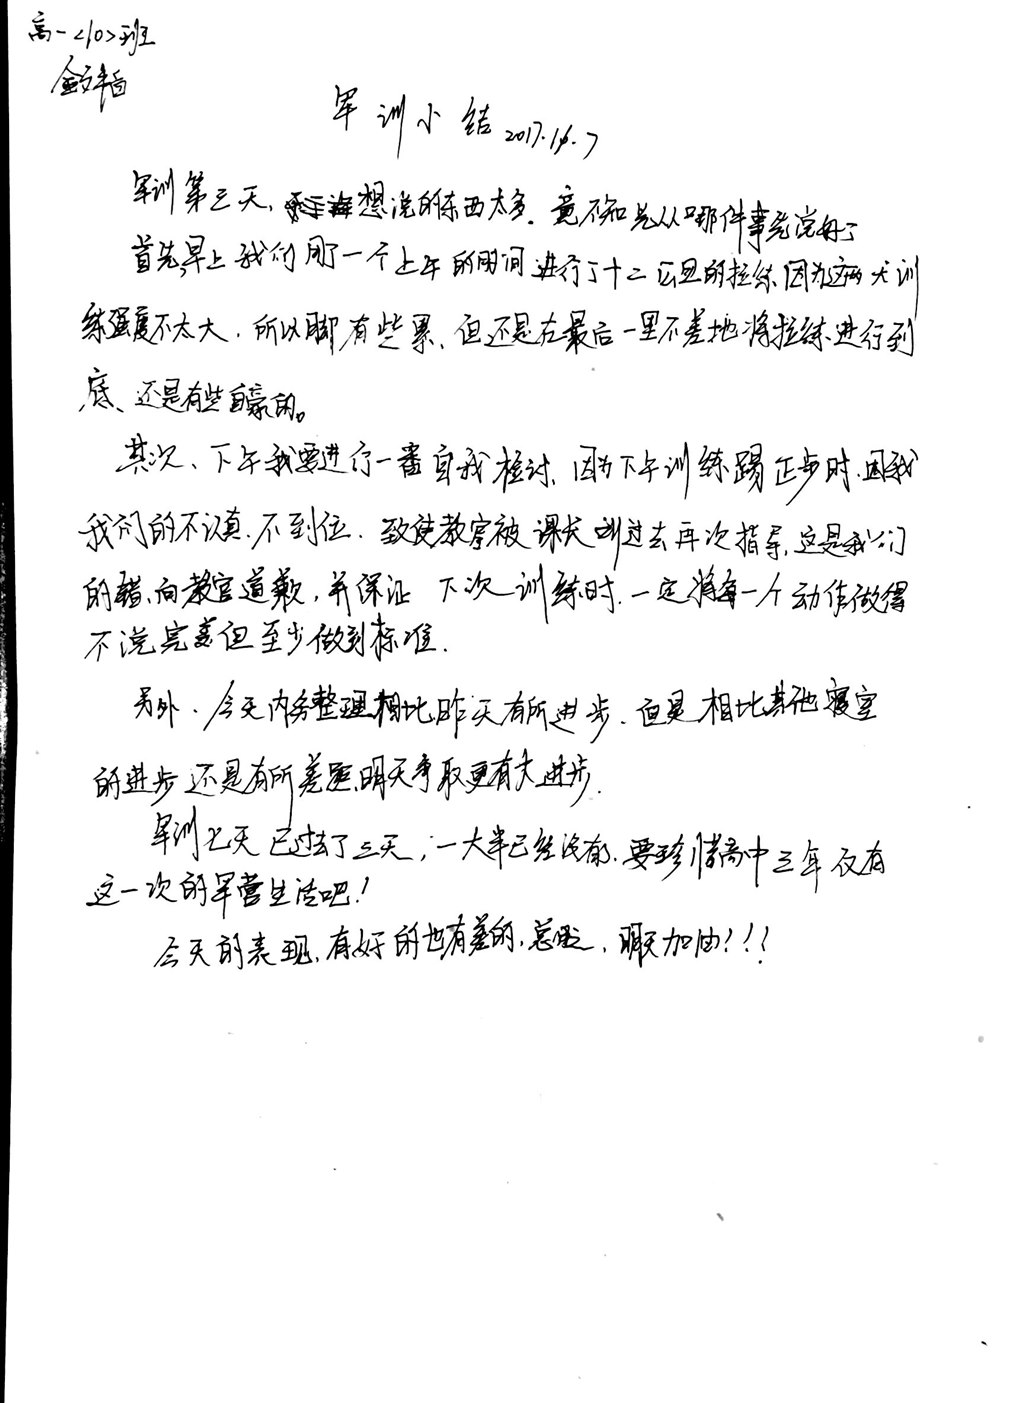 高一<10>班
军训小结 2017.
军训第三天，想说的东西太多。竟不知先从哪件事先说好了
首先，早上我们用了一个上午的时间进行了十二公里的拉练，因为这两天训
练强度不太大，所以脚有些累，但还是在最后一里不差地将拉练进行到
底、还是有些自豪的。
其次、下午我要进行一番自我检讨，因为下午训练踢正步时，因我
我们的不认真、不到位，致使教官被课长叫过去再次指导，这是我们
的错，向教官道歉，并保证 下次训练时，一定将每一个动作做得
不说完美但至少做到标准。
另外，今天内务整理相比昨天有所进步，但是相比其他寝室
的进步还是有所差距，明天争取更有大进步。
军训七天已过去了三天，一大半已经没有，要珍惜高中三年仅有
这一次的军营生活吧！
今天的表现，有好的也有差的，总之，明天加油！！！